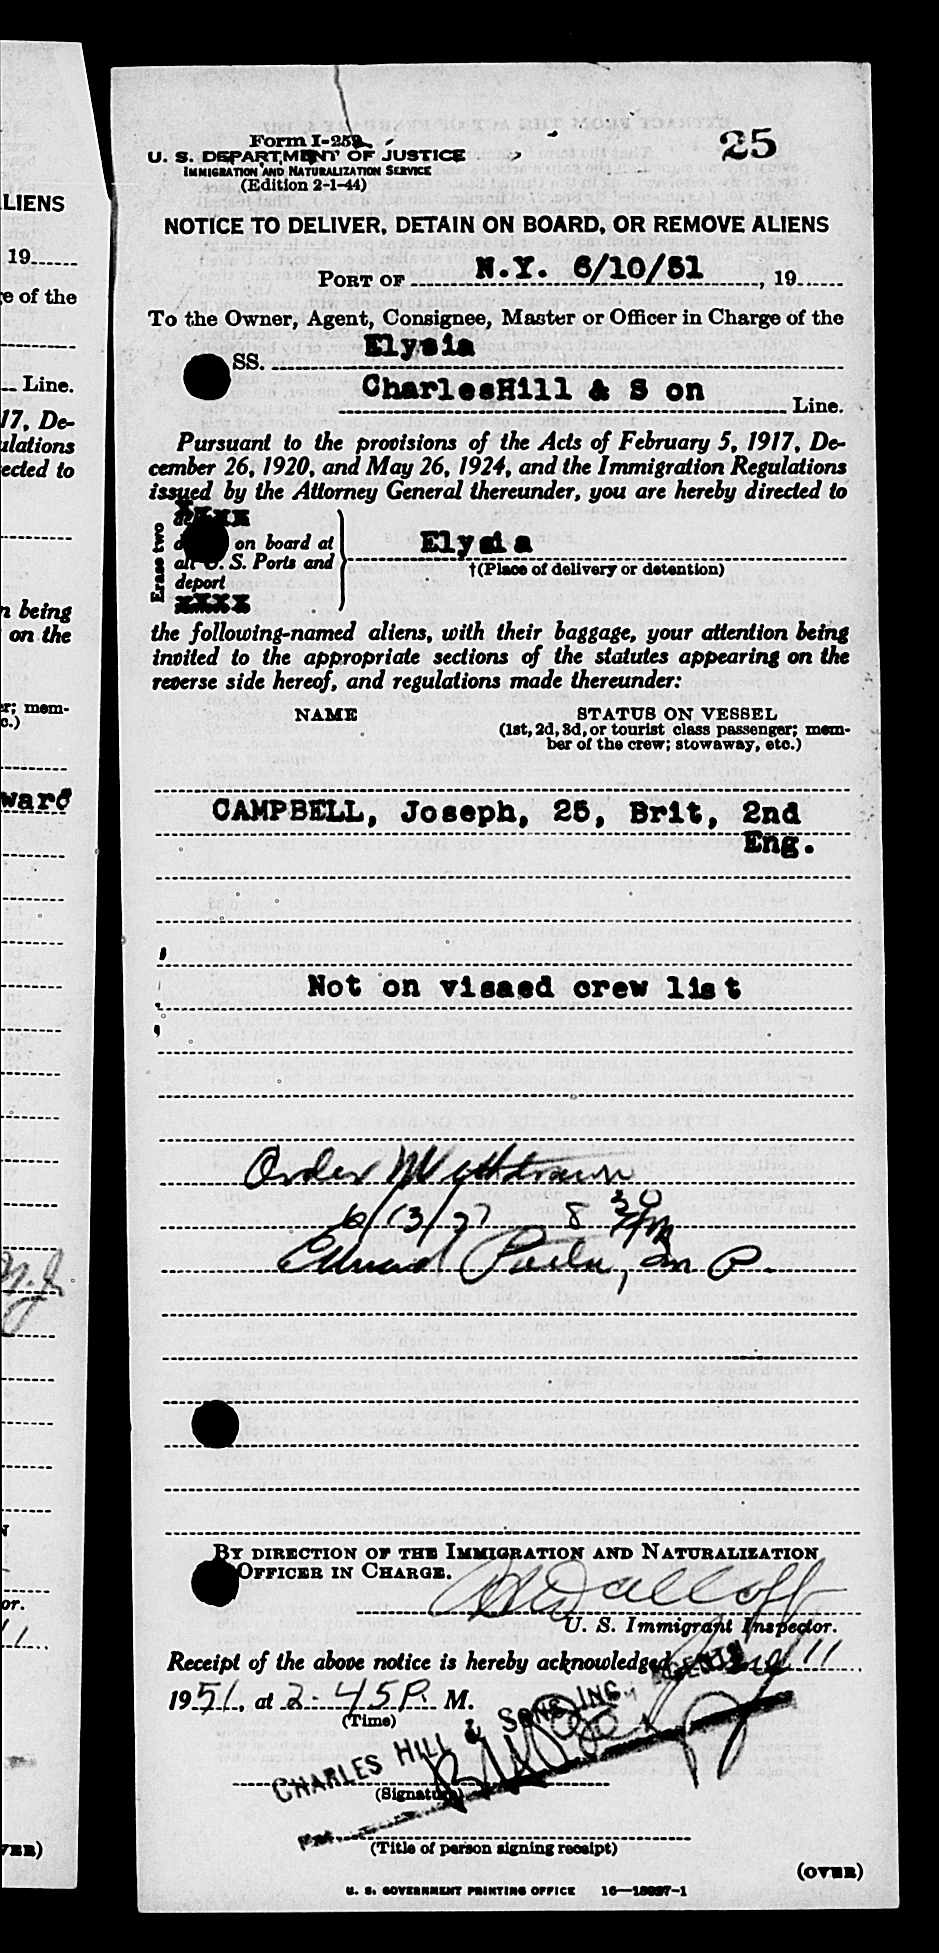 LIENS
19
e of the
Line.
17, De-
ulations
ected to
n being
on the
r; mem-
c.)
ward
N.J.
or.
11
VER)
25
Form I-259
U. S. DEPARTMENT OF JUSTICE
IMMIGRATION AND NATURALIZATION SERVICE
(Edition 2-1-44)
NOTICE TO DELIVER, DETAIN ON BOARD, OR REMOVE ALIENS
PORT OF N.Y. 6/10/51, 19
To the Owner, Agent, Consignee, Master or Officer in Charge of the
SS. Elysia
CharlesHill & S on Line.
Pursuant to the provisions of the Acts of February 5, 1917, De-
cember 26, 1920, and May 26, 1924, and the Immigration Regulations
issued by the Attorney General thereunder, you are hereby directed to
Erase two
xxxx
on board at
all U. S. Ports and
deport
xxxx
Elysia
†(Place of delivery or detention)
the following-named aliens, with their baggage, your attention being
invited to the appropriate sections of the statutes appearing on the
reverse side hereof, and regulations made thereunder:
NAME
STATUS ON VESSEL
(1st, 2d, 3d, or tourist class passenger; mem-
ber of the crew; stowaway, etc.)
CAMPBELL, Joseph, 25, Brit, 2nd
Eng.
Not on visaed crew list
Order Withdrawn
6/13/ 8 30
Edward
BY DIRECTION OF THE IMMIGRATION AND NATURALIZATION
OFFICER IN CHARGE.
U. S. Immigrant Inspector.
Receipt of the above notice is hereby acknowledged 11
1951, at 2-45 P. M.
(Time)
CHARLES HILL & SONS INC. AGENTS
(Signature)
(Title of person signing receipt)
(OVER)
U. S. GOVERNMENT PRINTING OFFICE 16—18937-1